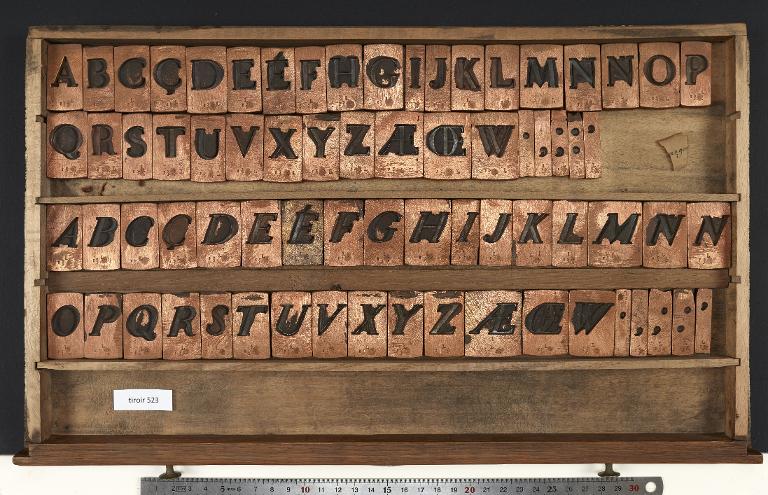 A B C Ç D E É F H G I J K L M N N O P
Q R S T U V X Y Z Æ Œ W : ; : : ,
A B C Ç D E É F G H I J K L M N N
O P Q R S T U V X Y Z Æ Œ W : ; : :
tiroir 523
1 2 3 4 5 6 7 8 9 10 11 12 13 14 15 16 17 18 19 20 21 22 23 24 25 26 27 28 29 30